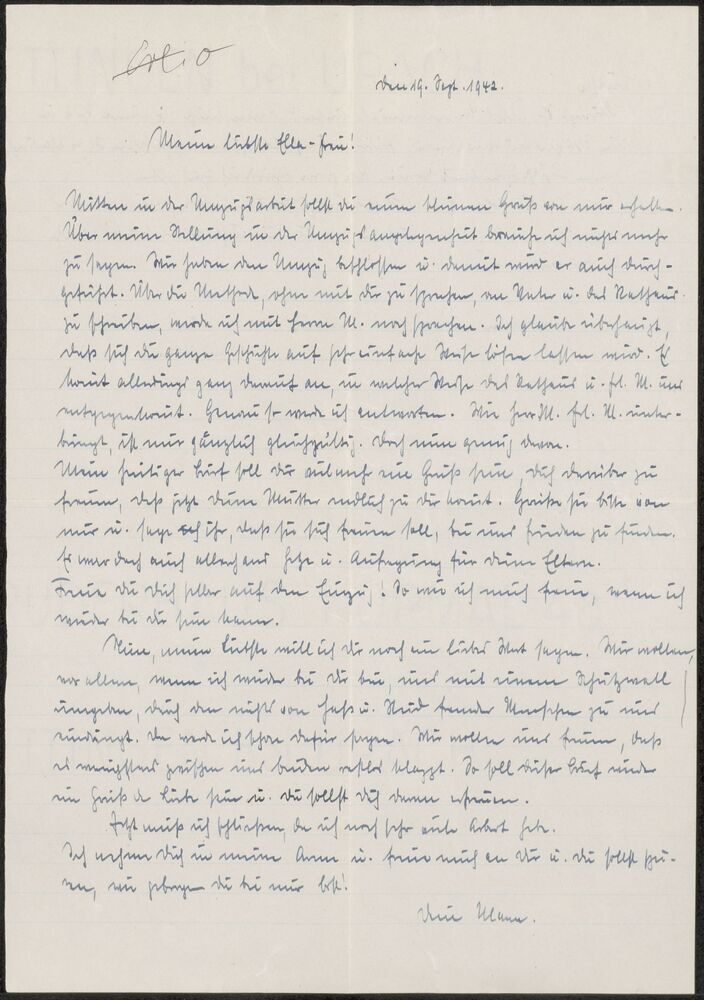 den 19. Sept. 1942.
Meine liebste Ella-Frau!
Mitten in der Umzugsarbeit sollst du einen kleinen Gruß von mir erhalten.
Über meine Stellung in der Umzugsangelegenheit brauche ich nichts mehr
zu sagen. Wir haben den Umzug beschlossen u. damit wird er auch durch-
geführt. Über die Methode, ohne mit dir zu sprechen, an Vater u. das Rathaus
zu schreiben, werde ich mit Herrn M. noch sprechen. Ich glaube überhaupt,
daß sich die ganze Geschichte auf sehr einfache Weise lösen lassen wird. Es
kommt allerdings ganz darauf an, in welcher Weise das Rathaus u. Frl. M. uns
entgegenkommt. Genau so werde ich antworten. Wie Herr M. Frl. M. unter-
bringt, ist mir gänzlich gleichgültig. Doch nun genug davon.
Mein heutiger Brief soll dir vielmehr ein Gruß sein, dich darüber zu
freuen, daß jetzt deine Mutter endlich zu dir kommt. Grüße sie bitte von
mir u. sage ihr, daß sie sich freuen soll, bei uns Frieden zu finden.
Es war doch auch allerhand Hetze u. Aufregung für deine Eltern.
Freue du dich selber auf den Einzug! So wie ich mich freue, wenn ich
wieder bei dir sein kann.
Nun, meine Liebste will ich dir noch ein liebes Wort sagen. Wir wollen,
vor allem, wenn ich wieder bei dir bin, uns mit einem Schutzwall
umgeben, durch den nichts von Haß u. Neid fremder Menschen zu uns
eindringt. Da werde ich schon dafür sorgen. Wir wollen uns freuen, daß
es wenigstens zwischen uns beiden restlos klappt. So soll dieser Brief wieder
ein Gruß der Liebe sein u. du sollst dich daran erfreuen.
Jetzt muß ich schließen, da ich noch sehr viele Arbeit habe.
Ich nehme dich in meine Arme u. freue mich an dir u. du sollst spü-
ren, wie geborgen du bei mir bist!
Dein Mann.